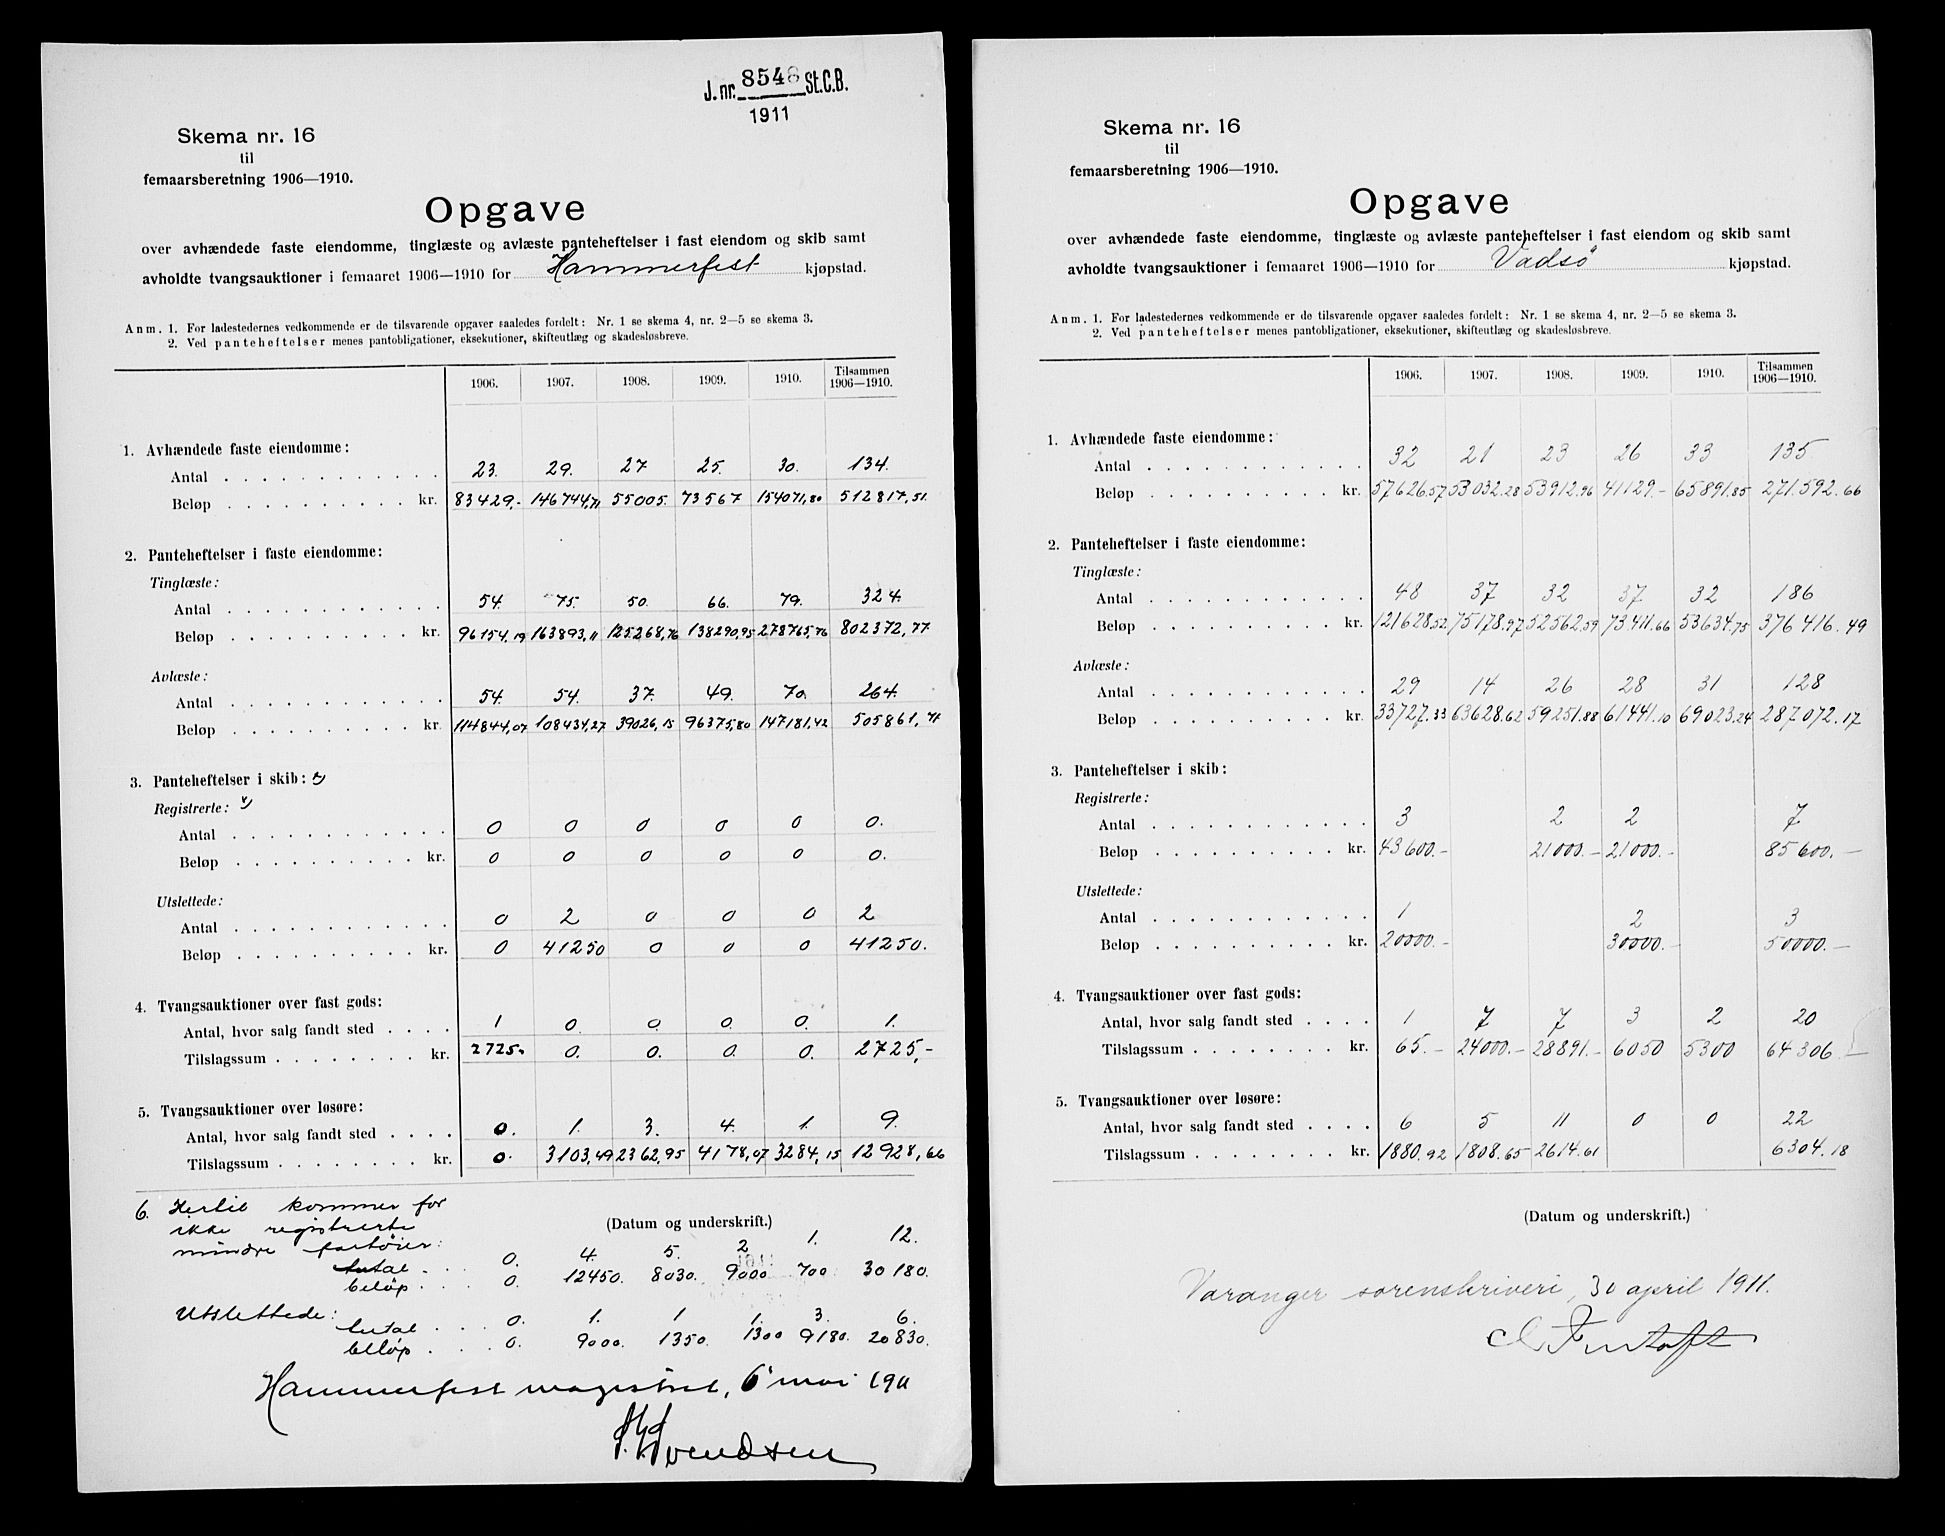 J. nr. 8548 St.C.B.
1911
Skema nr. 16
til
femaarsberetning 1906—1910.
Opgave
over avhændede faste eiendomme, tinglæste og avlæste panteheftelser i fast eiendom og skib samt
avholdte tvangsauktioner i femaaret 1906—1910 for Hammerfest kjøpstad.
Anm. 1. For ladestedernes vedkommende er de tilsvarende opgaver saaledes fordelt: Nr. 1 se skema 4, nr. 2—5 se skema 3.
2. Ved panteheftelser menes pantobligationer, eksekutioner, skifteutlæg og skadesløsbreve.
1906. 1907. 1908. 1909. 1910. Tilsammen 1906—1910.
1. Avhændede faste eiendomme:
Antal 23. 29. 27 25. 30. 134.
Beløp kr. 83429,- 146744,71 55005. 73567 154071,80 512817,51.
2. Panteheftelser i faste eiendomme:
Tinglæste:
Antal 54. 75. 50. 66. 79. 324.
Beløp kr. 96154,19 163893,11 125268,76 138290,95 278765,76 802372,77
Avlæste:
Antal 54. 54. 37. 49. 70. 264.
Beløp kr. 114844,07 108434,27 39026,15 96375,80 147181,42 505861,71
3. Panteheftelser i skib:
Registrerte:
Antal 0 0 0 0 0 0.
Beløp kr. 0 0 0 0 0 0.
Utslettede:
Antal 0 2 0 0 0 2
Beløp kr. 0 41250 0 0 0 41250.
4. Tvangsauktioner over fast gods:
Antal, hvor salg fandt sted 1 0. 0. 0. 0. 1.
Tilslagssum kr. 2725,- 0. 0. 0. 0. 2725,-
5. Tvangsauktioner over løsøre:
Antal, hvor salg fandt sted 0. 1. 3. 4. 1. 9.
Tilslagssum kr. 0. 3103,49 2362,95 4178,07 3284,15 12928,66
6. Hertil kommer for
ikke registrerte
mindre fartöier:
(Datum og underskrift.)
antal 0. 4. 5. 2 1. 12.
beløp 0. 12450. 8030. 9000 700 30180.
Utslettede:
antal 0. 1. 1 1. 3. 6.
beløp 0. 9000. 1350. 1300 9180. 20830.
Hammerfest magistrat, 6 mai 1911
Svendsen
Skema nr. 16
til
femaarsberetning 1906—1910.
Opgave
over avhændede faste eiendomme, tinglæste og avlæste panteheftelser i fast eiendom og skib samt
avholdte tvangsauktioner i femaaret 1906—1910 for Vadsö kjøpstad.
Anm. 1. For ladestedernes vedkommende er de tilsvarende opgaver saaledes fordelt: Nr. 1 se skema 4, nr. 2—5 se skema 3.
2. Ved panteheftelser menes pantobligationer, eksekutioner, skifteutlæg og skadesløsbreve.
1906. 1907. 1908. 1909. 1910. Tilsammen 1906—1910.
1. Avhændede faste eiendomme:
Antal 32 21 23 26 33 135
Beløp kr. 57626.57 53032.28 53912.96 41129.- 65891.85 271.592.66
2. Panteheftelser i faste eiendomme:
Tinglæste:
Antal 48 37 32 37 32 186
Beløp kr. 121628.52 75178.97 52562.59 73411.66 53634.75 376416.49
Avlæste:
Antal 29 14 26 28 31 128
Beløp kr. 33727.33 63628.62 59251.88 61441.10 69023.24 287072.17
3. Panteheftelser i skib:
Registrerte:
Antal 3 2 2 7
Beløp kr. 43600.- 21000.- 21000.- 85600.-
Utslettede:
Antal 1 2 3
Beløp kr. 20000.- 30000.- 50000.-
4. Tvangsauktioner over fast gods:
Antal, hvor salg fandt sted 1 7 7 3 2 20
Tilslagssum kr. 65.- 24000.- 28891.- 6050 5300 64306.-
5. Tvangsauktioner over løsøre:
Antal, hvor salg fandt sted 6 5 11 0 0 22
Tilslagssum kr. 1880.92 1808.65 2614.61 6304.18
(Datum og underskrift.)
Varanger sorenskriveri, 30 april 1911.